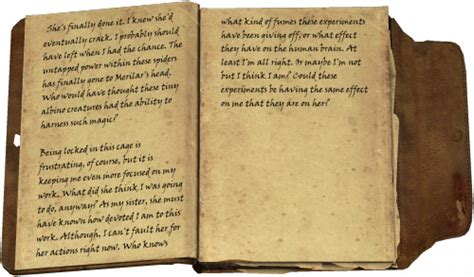 She's finally done it. I knew she'd
eventually crack. I probably should
have left when I had the chance. The
untapped power within these spiders
has finally gone to Merilar's head.
Who would have thought these tiny
albino creatures had the ability to
harness such magic?
Being locked in this cage is
frustrating, of course, but it is
keeping me even more focused on my
work. What did she think I was going
to do, anyway? As my sister, she must
have known how devoted I am to this
work. Although, I can't fault her for
her actions right now. Who knows
what kind of fumes these experiments
have been giving off, or what effect
they have on the human brain. At
least I'm all right. Or maybe I'm not
but I think I am? Could these
experiments be having the same effect
on me that they are on her?